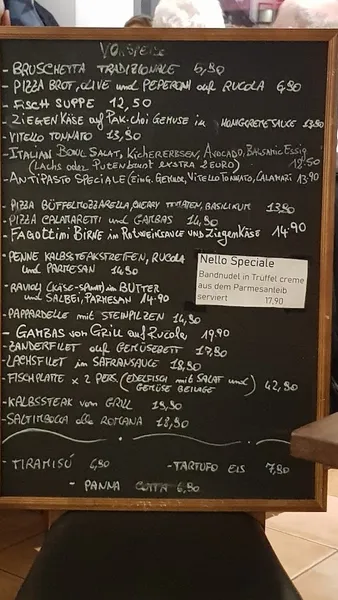 VORSPEISE
- BRUSCHETTA TRADIZIONALE 5,90
- PIZZA BROT, OLIVE und PEPERONI auf RUCOLA 6,90
- FISCH SUPPE 12,50
- ZIEGENKÄSE auf PAK-CHOI GEMÜSE in HONIGCRETESAUCE 13,90
- VITELLO TONNATO 13,90
- ITALIAN BOWL SALAT, KICHERERBSEN, AVOCADO, BALSAMIC ESSIG
(LACHS oder PUTENBRUST EXTRA 2 EURO) 12,50
- ANTIPASTO SPECIALE (EING. GEMÜSE, VITELLO TONNATO, CALAMARI) 13,90
- PIZZA BÜFFELMOZZARELLA, CHERRY TOMATEN, BASILIKUM 13,90
- PIZZA CALAMARETTI und GAMBAS 14,90
- FAGOTTINI BIRNE in ROTWEINSAUCE und ZIEGENKÄSE 14.90
- PENNE KALBSTEAKSTREIFEN, RUCOLA
und PARMESAN 14,90
- RAVIOLI (KÄSE-SPINAT) in BUTTER
und SALBEI, PARMESAN 14.90
- PAPPARDELLE mit STEINPILZEN 14,90
- GAMBAS vom GRILL auf RUCOLA 19.90
- ZANDERFILET auf GEMÜSEBETT 17,90
- LACHSFILET in SAFRANSAUCE 18,90
- FISCHPLATTE x 2 PERS. (EDELFISCH mit SALAT und
GEMÜSE BEILAGE) 42,90
- KALBSSTEAK vom GRILL 19,90
- SALTIMBOCCA alla ROMANA 18,90
Nello Speciale
Bandnudel in Trüffel creme
aus dem Parmesanleib
serviert 17,90
- TIRAMISÚ 6,90
- TARTUFO EIS 7,90
- PANNA COTTA 6,90